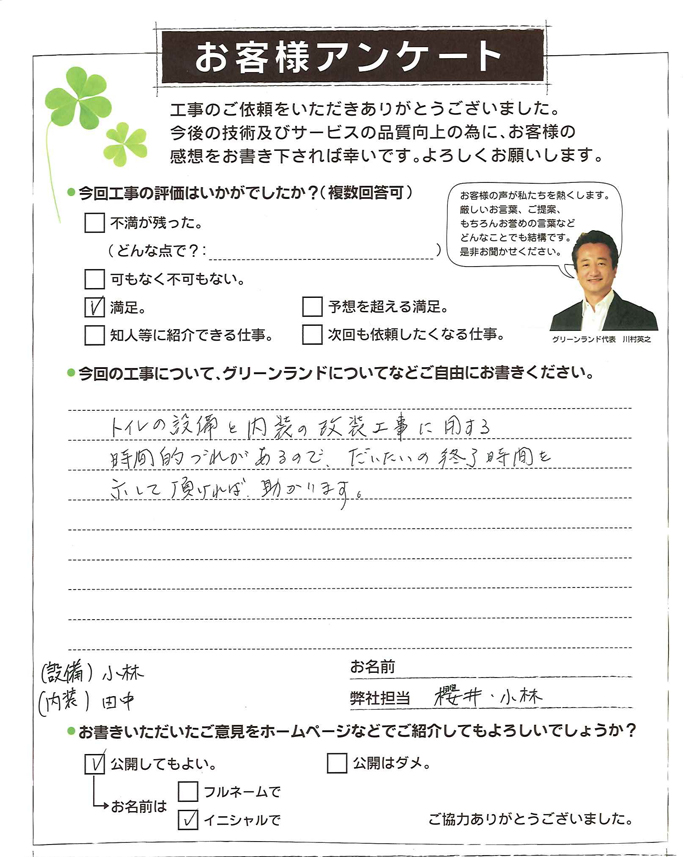 お客様アンケート
工事のご依頼をいただきありがとうございました。
今後の技術及びサービスの品質向上の為に、お客様の
感想をお書き下されば幸いです。よろしくお願いします。
今回工事の評価はいかがでしたか？(複数回答可)
不満が残った。
(どんな点で？: )
可もなく不可もない。
満足。
予想を超える満足。
知人等に紹介できる仕事。
次回も依頼したくなる仕事。
お客様の声が私たちを熱くします。
厳しいお言葉、ご提案、
もちろんお誉めの言葉など
どんなことでも結構です。
是非お聞かせください。
グリーンランド代表 川村英之
今回の工事について、グリーンランドについてなどご自由にお書きください。
トイレの設備と内装の改装工事に関する
時間的づれがあるので、だいたいの終了時間を
示して頂ければ、助かります。
(設備) 小林
(内装) 田中
お名前
弊社担当 櫻井・小林
お書きいただいたご意見をホームページなどでご紹介してもよろしいでしょうか？
公開してもよい。
公開はダメ。
お名前は
フルネームで
イニシャルで
ご協力ありがとうございました。